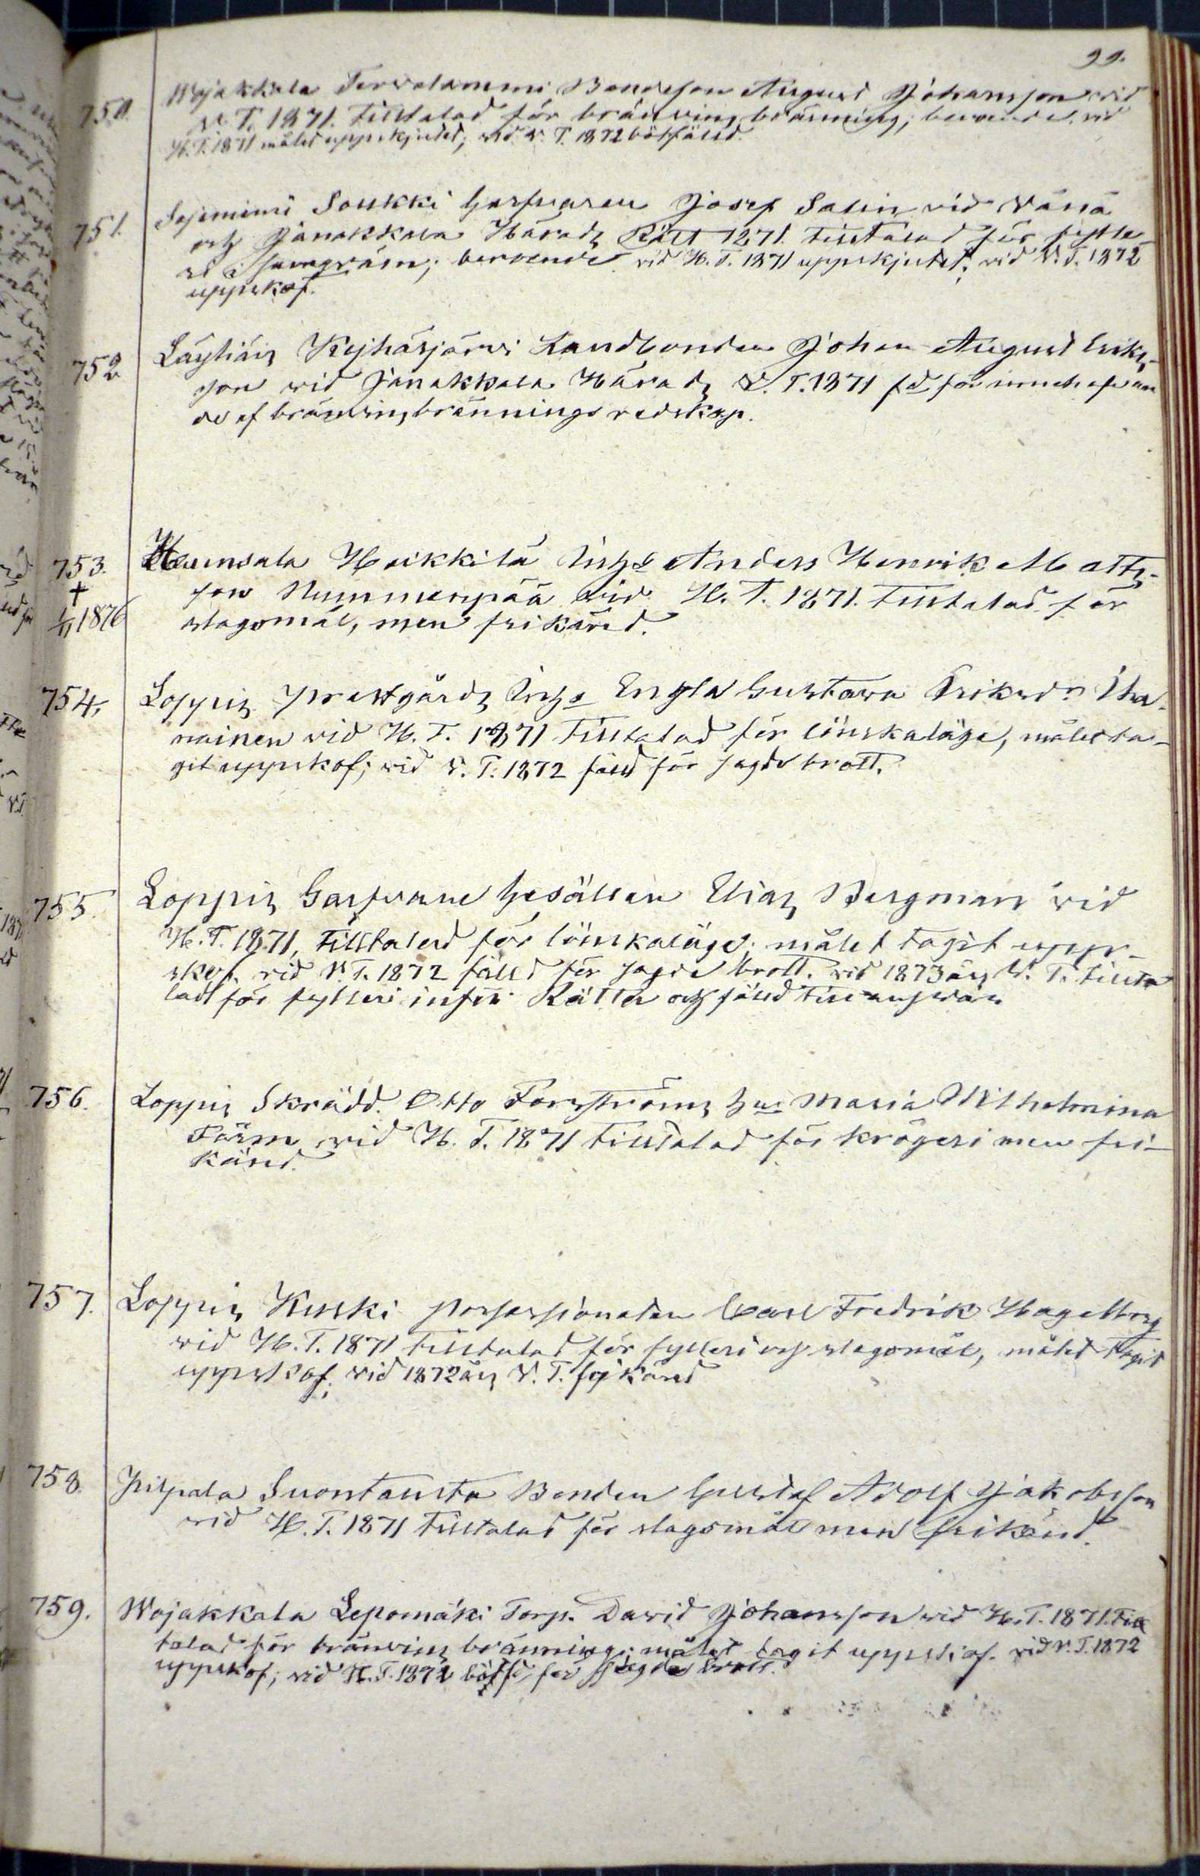 99.
750. Wojakkala Terwalammi Bondeson August Johansson wid
W. T. 1871 tilltalad för bränvinsbränning; beroende, vid
H. T. 1871 målet uppskjutet, wid W. T. 1872 bötfäld.
751. Sajuniemi Soukki Josef Salin vid Wånå
och Janakkala Härads Rätt 1871 tilltalad för fylle
beroende vid H. T. 1871 uppskjutet; vid V. T. 1872
uppskof.
752. Läyliäis Keihäsjärwi Landbonden Johan August Eriks-
son vid Janakkala Härads V. T. 1871 fd för innehafwan
de af bränvinsbränningsredskap.
753. Heinsala Heikkilä Inhs Anders Henrik Matts-
† son Nummenpää vid H. T. 1871 tilltalad för
1876 slagsmål, men frikänd.
754. Loppis prestgårds Inhs Engla Gustava Eriksdr
nainen vid H. T. 1871 tilltalad för lönskaläge, målet ta-
git uppskof; vid V. T. 1872 fäld för sagde brott.
755. Loppis Garfvare Gesällen Elias Bergman vid
H. T. 1871, tilltalad för lönskaläge; målet tagit upp-
skof. vid V. T. 1872 fälld för sagde brott. vid 1873 års V. T. tillta
lad för fylleri inför Rätta och fäld till answar
756. Loppis Skrädd. Otto Forsströms hu Maria Wilhelmina
vid H. T. 1871 tilltalad för krögeri men fri-
känd.
757. Loppis Kuski possessionaten Carl Fredrik Hagelberg
vid H. T. 1871 tilltalad för fylleri och slagsmål, målet tagit
uppskof; vid 1872 års V. T. frikänd
758. Pilpala Suontausta Bonden Gustaf Adolf Jakobsson
vid H. T. 1871 tilltalad för slagsmål men frikänd.
759. Wojakkala Lepomäki Torp. David Johansson vid H. T. 1871 till
talad för bränvins bränning; målet tagit uppskof. vid V. T. 1872
uppskof; vid H. T. 1872 bötfd för sagde brott.